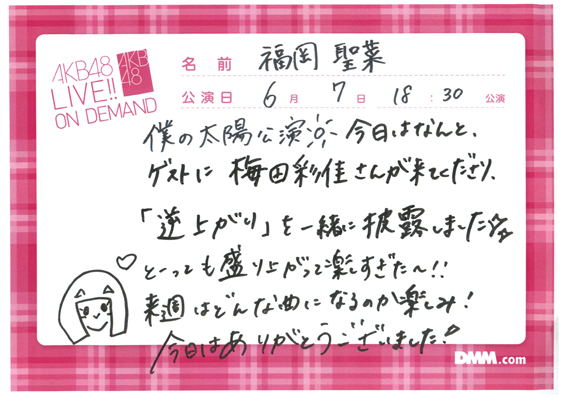 AKB48
LIVE!!
ON DEMAND
AKB
48
名前 福岡 聖菜
公演日 6月 7日 18:30 公演
僕の太陽公演 今日はなんと、
ゲストに 梅田彩佳さんが来てくださり、
「逆上がり」を一緒に披露しました
とーっても盛り上がって楽しすぎた〜!!
来週はどんな曲になるのか楽しみ!
今日はありがとうございました!
DMM.com